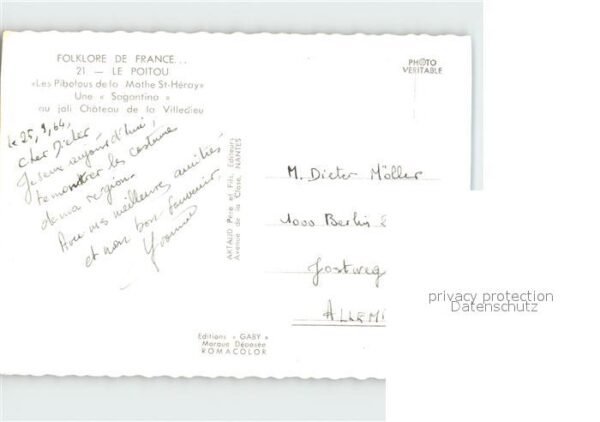 FOLKLORE DE FRANCE...
21 — LE POITOU
«Les Pibolous de la Mothe St-Héray»
Une « Sagantina »
au joli Château de la Villedieu
PHOTO
VERITABLE
le 25, 3, 64,
Cher Dieter,
Je veux aujourd'hui,
te montrer les costume
de ma région.
Avec mes meilleures amitiés
et mon bon souvenir,
Yvonne
ARTAUD Père et Fils, Editeurs
Avenue de la Close, NANTES
M. Dieter Möller
1000 Berlin 2
Jostweg
ALLEM
Editions « GABY »
Marque Déposée
ROMACOLOR
privacy protection
Datenschutz